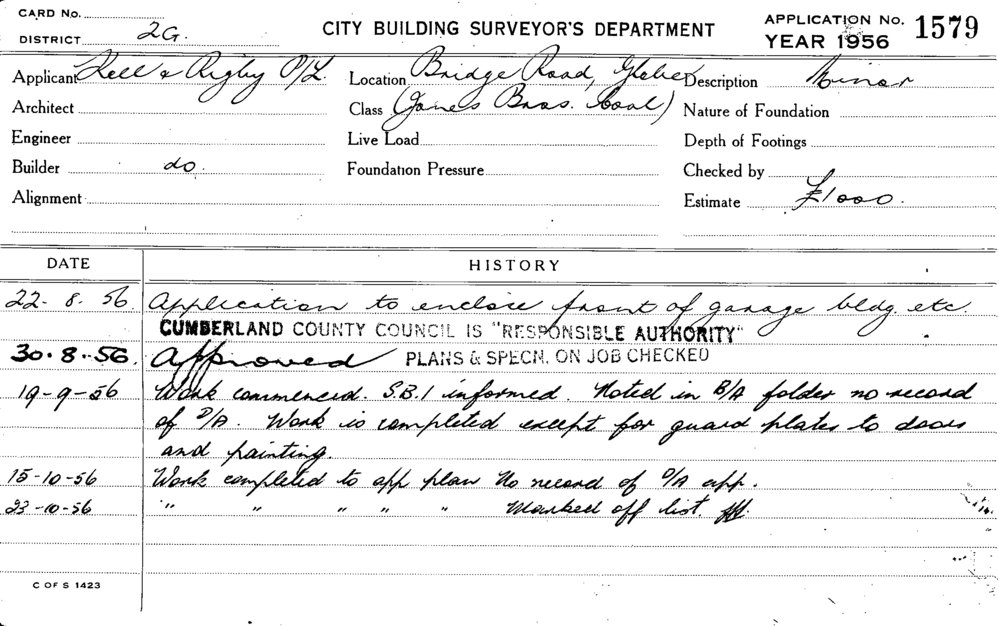 CARD No.
DISTRICT 2G.
CITY BUILDING SURVEYOR'S DEPARTMENT
APPLICATION No. 1579
YEAR 1956
Applicant Kell & Rigby P/L. Location Bridge Road, Glebe Description Minor
Architect Class (Jones Bros. Coal) Nature of Foundation
Engineer Live Load Depth of Footings
Builder do. Foundation Pressure Checked by
Alignment Estimate £1000.
DATE HISTORY
22. 8. 56 Application to enclose front of garage bldg. etc.
CUMBERLAND COUNTY COUNCIL IS "RESPONSIBLE AUTHORITY"
30.8.56. Approved PLANS & SPECN. ON JOB CHECKED
19-9-56 Work commenced. S.B.1 informed. Noted in B/A folder no record
of D/A. Work is completed except for guard plates to doors
and painting.
15-10-56 Work completed to app plan No record of D/A app.
23-10-56 " " " " " Marked off list.
C OF S 1423